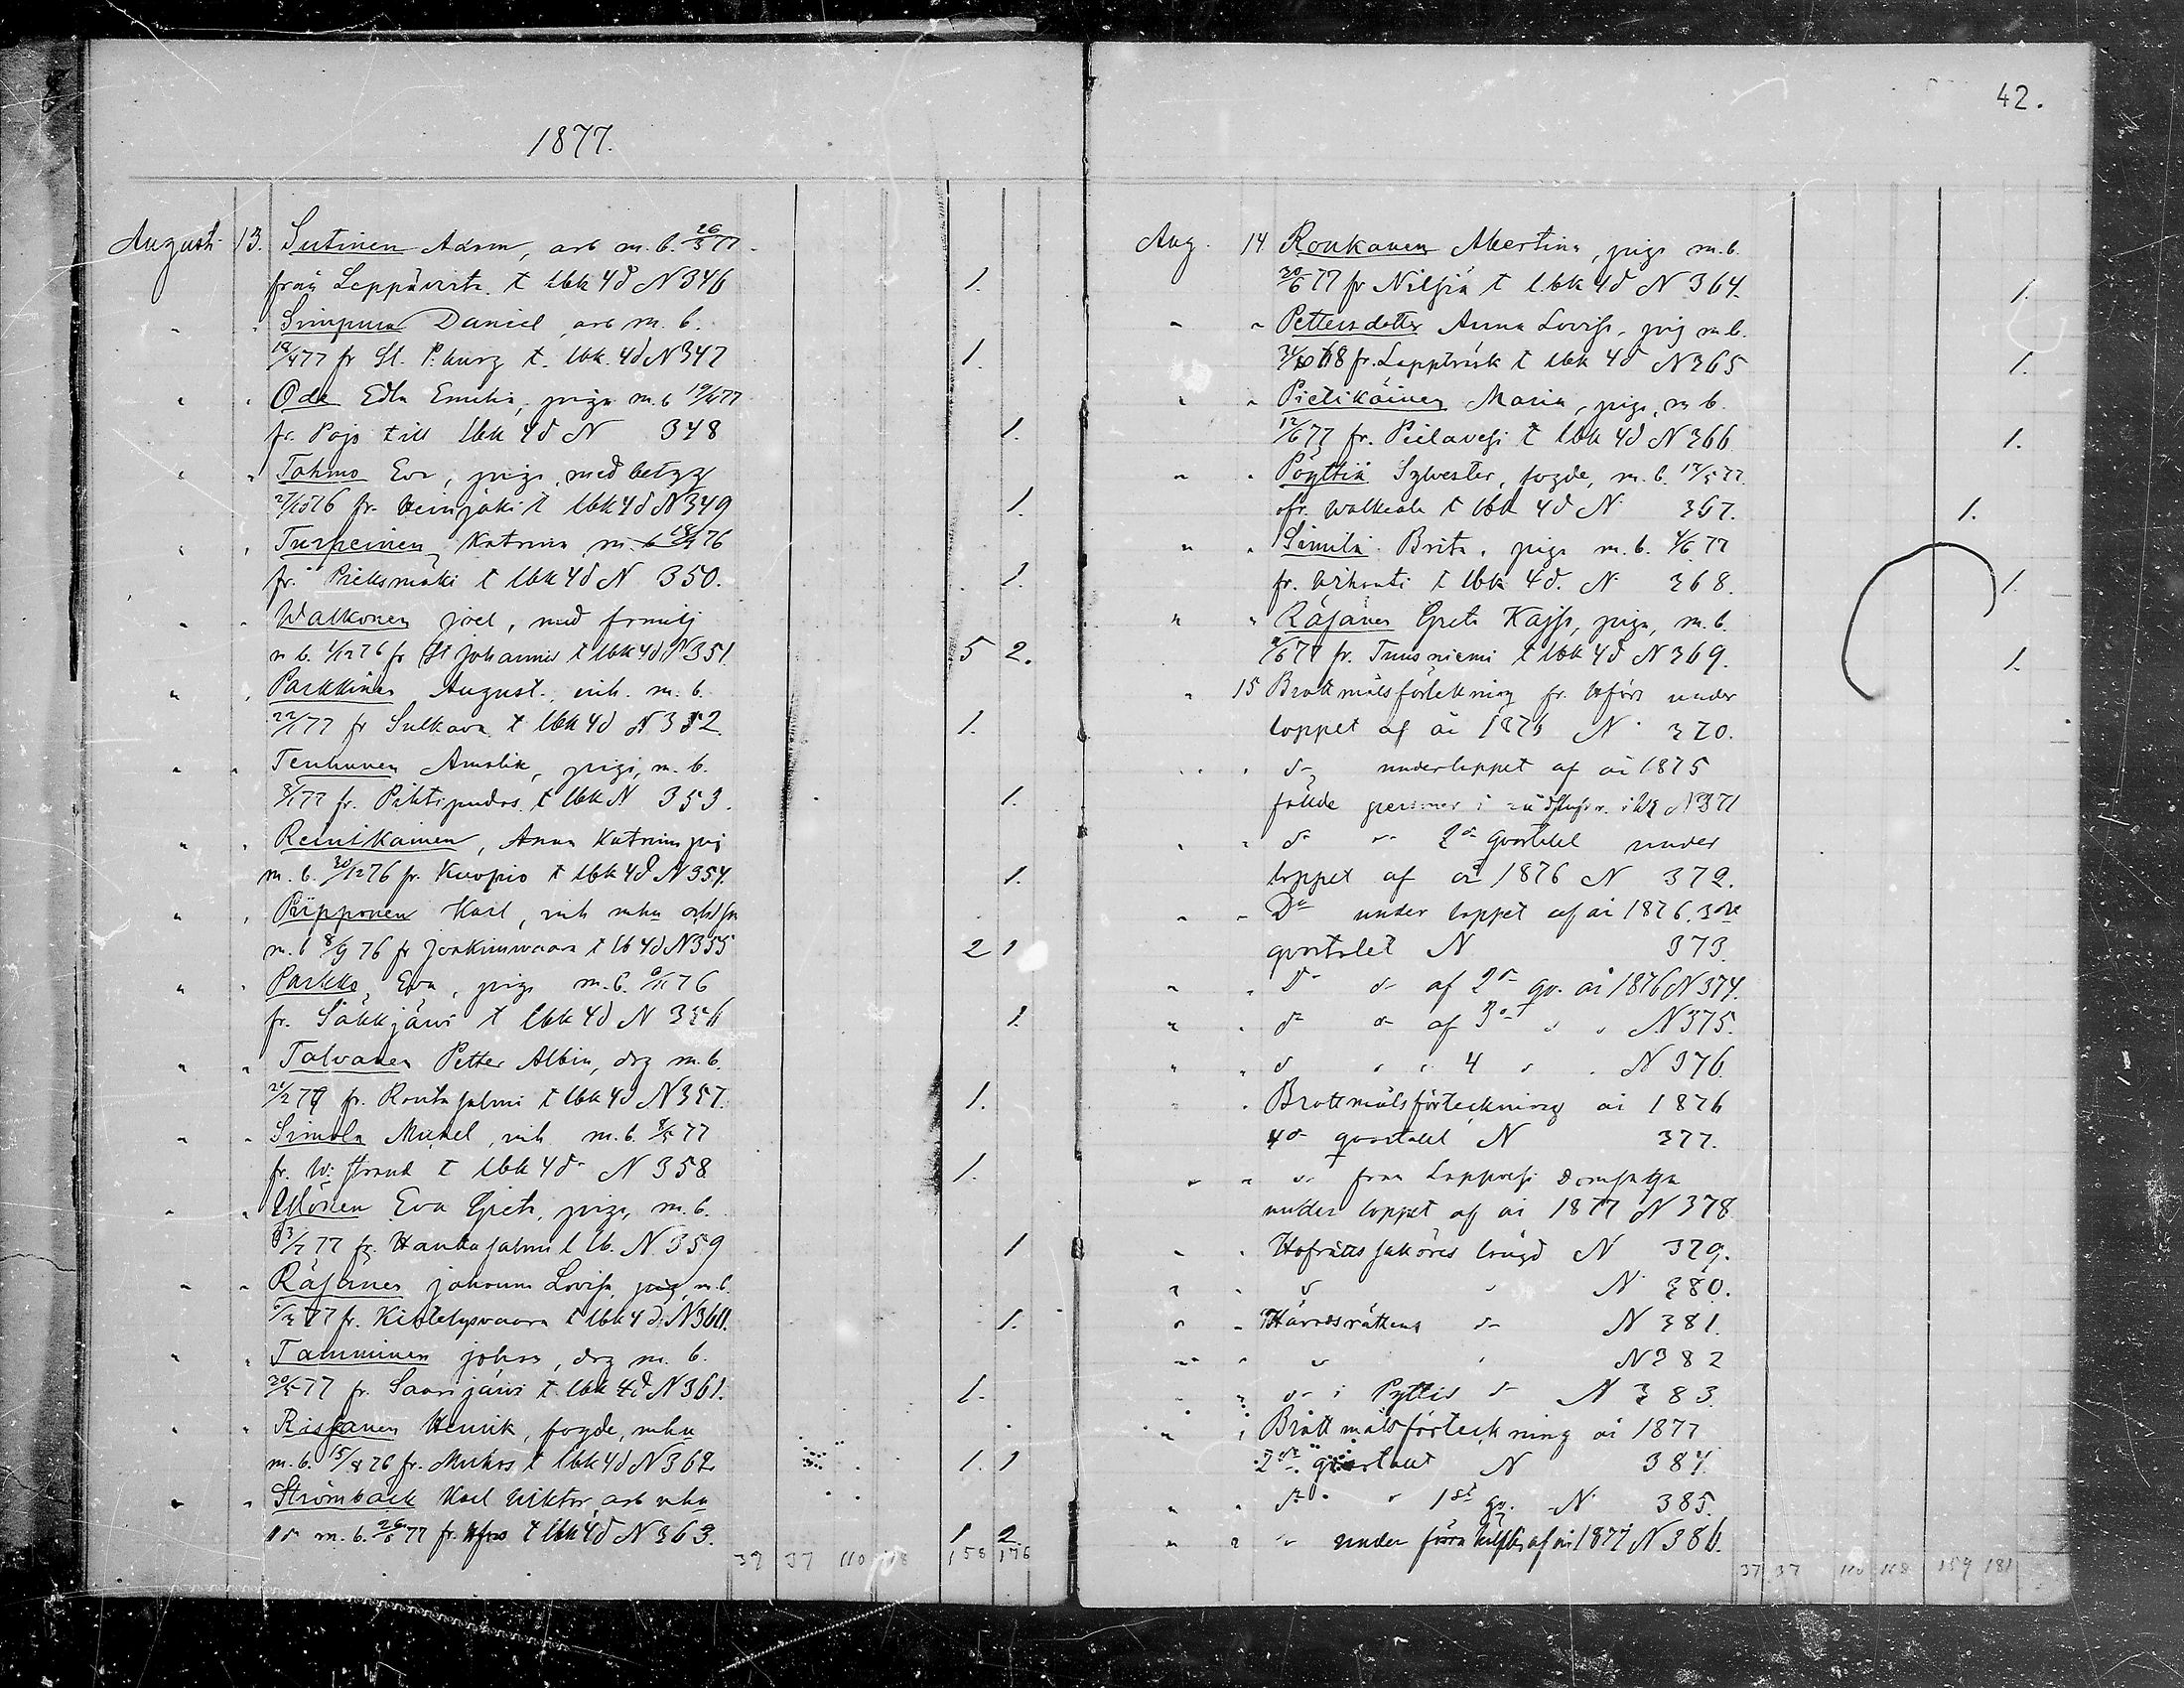 1877.
August 13. Sutinen Adam, arb m. b. 26/3 77
från Leppävirta t lbk 4d N 346 1.
" " Simpura Daniel, arb m. b.
18/4 77 fr St. P.burg t. lbk. 4d N 347 1.
" " Ode Edla Emilia, piga m. b 19/6 77
fr. Pojo till lbk 4d N 348 1.
" " Tahmo Eva, piga, med betyg
27/10 76 fr. Heinjoki t lbk 4d N 349 1.
" " Turpeinen Katrina m. b 76
fr. Pieksmäki t lbk 4d N 350. 1.
" " Walkonen Joel, med familj
m b. 1/12 76 fr St Johannes t lbk 4d N 351 5 2.
" " Parkkinen August. inh. m. b.
22/1 77 fr Sulkava t lbk 4d N 352 1.
" " Tenhunen Amalia, piga, m. b.
8/1 77 fr. Pihtipudas t lbk N 353. 1.
" " Reinikainen, Anna Katrina pig
m. b. 30/12 76 fr. Kuopio t lbk 4d N 354. 1.
" " Piipponen Karl, inh mhu och
m. b 8/9 76 fr Joakimvaara t lb 4d N 355 2 1
" " Parkko, Eva, piga m. b. 9/11 76
fr. Säkkjärvi t lbk 4d N 356 1.
" " Talvanen Petter Albin, drg m. b.
21/2 77 fr. Rautasalmi t lbk 4d N 357. 1.
" " Simola Mickel, inh m. b. 8/5 77
fr. W. strand t lbk 4d N 358 1.
" " Ylönen Eva Greta, piga, m. b.
77 fr. Hankasalmi t lb. N. 359 1
" " Räsänen Johanna Lovisa, pig, m. b.
77 fr. Kiihtelysvaara t lbk 4d. N 360. 1.
" " Tamminen Johan, drg m. b.
20/5 77 fr. Saarijärvi t. lbk 4d N 361. 1.
" " Rissanen Henrik, fogde, mhu
m. b. 15/8 76 fr. Muhos t lbk 4d N 362 1. 1
" " Strömbäck Karl Viktor, arb mhu
m. b. 77 fr. Hfors t lbk 4d N 363. 1 2
37 37 110 118 158 176
42.
Aug. 14 Ronkanen Albertina, piga m. b.
30/6 77 fr Nilsiä t lbk 4d N 364. 1.
" " Pettersdotter Anna Lovisa, pig m b.
68 fr. Lappträsk t lbk 4d N 365 1.
" " Pietikäinen Maria, piga, m b.
12/6 77 fr. Pielavesi t lbk 4d N 366 1.
" " Pöyttiä Sylvester, fogde, m. b. 17/5 77
fr. Walkeala t lbk 4d N 367. 1.
" " Similä Brita, piga m. b. 4/6 77
fr. Vihanti t lbk 4d. N 368. 1.
" " Räsänen Greta Kajsa, piga, m. b.
77 fr. Tuusniemi t lbk 4d N 369. 1.
" 15 Brottmålsförteckning fr. Hfors under
loppet af år 1876 N 370.
" " d:o under loppet af år 1875
fällde personer i N 371
" " d:o 2:a qvartalet under
loppet af år 1876 N 372.
" " D:o under loppet af år 1876. 3:dje
qvartalet N 373.
" " d:o d:o af 2:a qv. år 1876 N 374.
" " d:o d:o af 3:e " " N 375.
" " d " " 4 " " N 376.
" " Brottmålsförteckning år 1876
4:de qvartalet N 377.
" " d:o från Lappvesi Domsaga
under loppet af år 1877 N 378
" " Hofrätts saköres längd N 379.
" " d " N 380.
" " Häradsrättens d:o N 381.
" " d " N 382
" " d:o i Pyttis d:o N 383.
" " Brottmålsförteckning år 1877
2:a qvartalet N 384.
" " d:o " 1:sta qv. N 385.
" " d:o under förra hälften af år 1877 N 386.
37 37 110 118 159 181